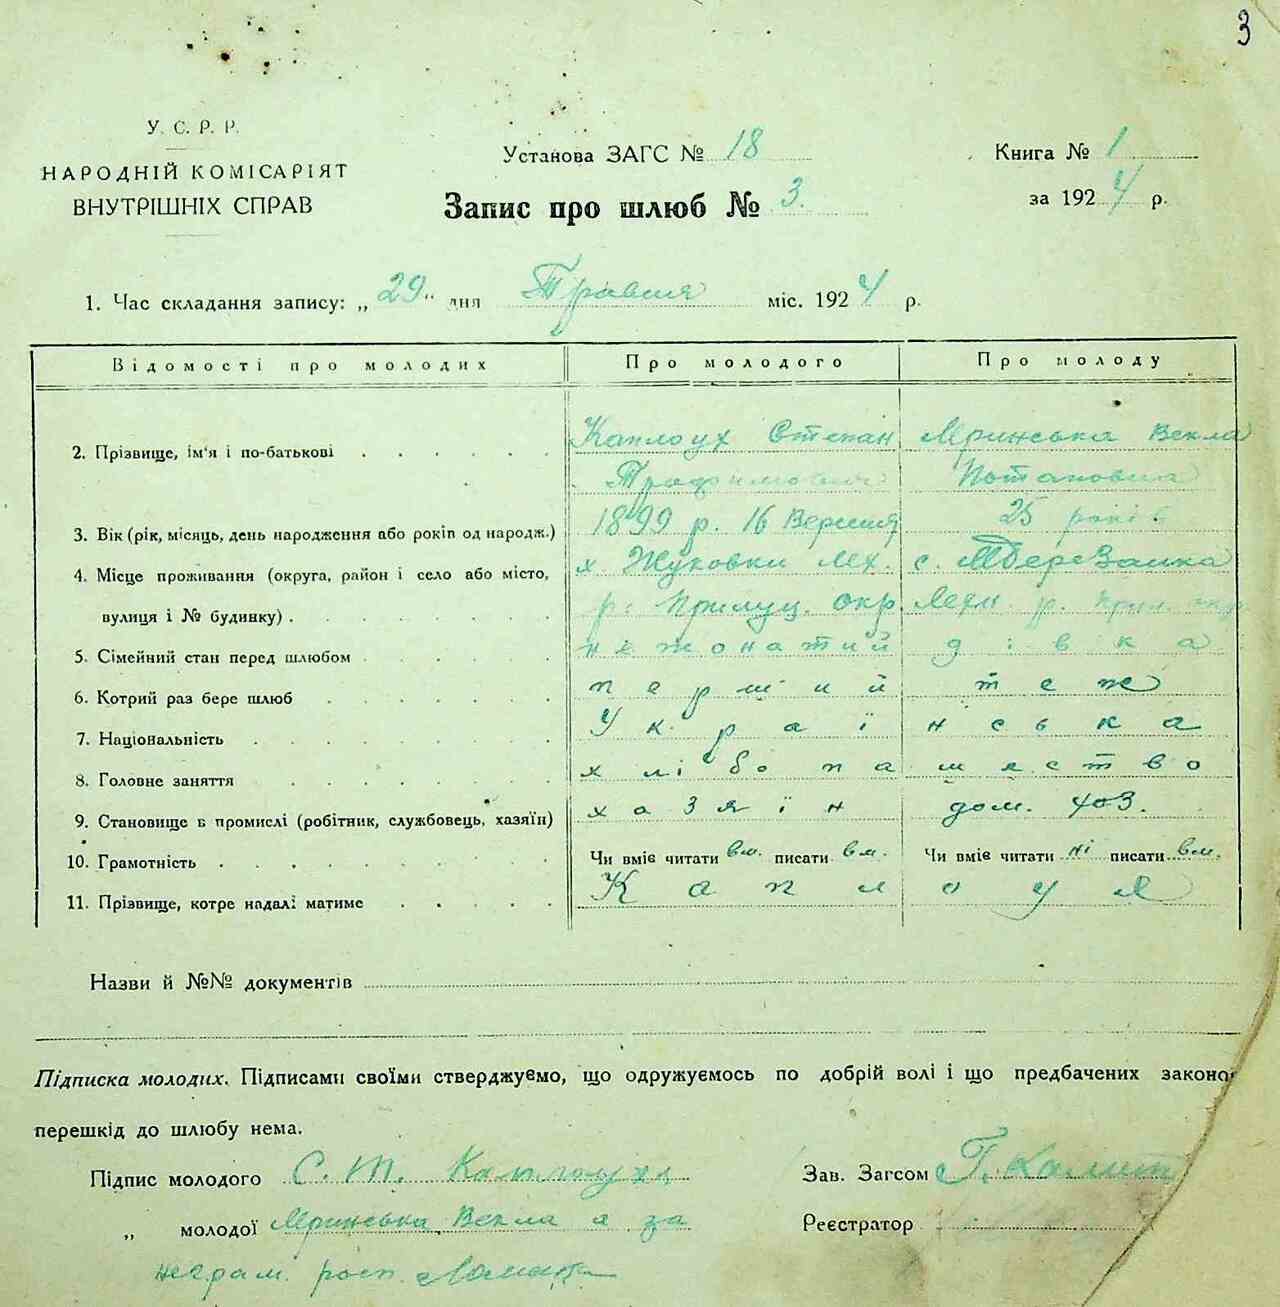 3
У. С. Р. Р.
НАРОДНІЙ КОМІСАРІЯТ
ВНУТРІШНІХ СПРАВ
Установа ЗАГС № 18
Запис про шлюб № 3.
Книга № 1
за 1924 р.
1. Час складання запису: „29" дня Травня міс. 1924 р.
Відомості про молодих Про молодого Про молоду
2. Прізвище, ім'я і по-батькові Каплоух Степан Мринська Векла
Трофимович Потаповна
3. Вік (рік, місяць, день народження або років од народж.) 1899 р. 16 Вересня 25 років
4. Місце проживання (округа, район і село або місто, х. Жуковки Мх. с.
вулиця і № будинку) р. Прилуц. окр. р. Прил. окр
5. Сімейний стан перед шлюбом нежонатий дівка
6. Котрий раз бере шлюб перший теж
7. Національність Українська
8. Головне заняття хлібопашество
9. Становище в промислі (робітник, службовець, хазяїн) хазяїн дом. хоз.
10. Грамотність Чи вміє читати вм. писати вм. Чи вміє читати ні писати вм.
11. Прізвище, котре надалі матиме Каплоух
Назви й №№ документів
Підписка молодих. Підписами своїми стверджуємо, що одружуємось по добрій волі і що предбачених законо
перешкід до шлюбу нема.
Підпис молодого С. Т. Каплоух
„ молодої Мринська Векла а за
неграм. росп.
Зав. Загсом Г.
Реєстратор